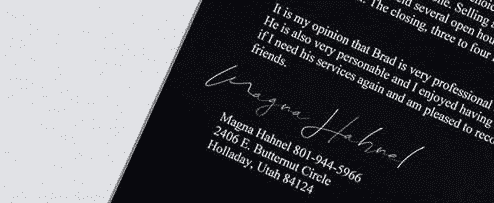 and several open
The closing, three to four
It is my opinion that Brad is very professional
He is also very personable and I enjoyed having
if I need his services again and am pleased to
friends.
Magna Hahnel
Magna Hahnel 801-944-5966
2406 E. Butternut Circle
Holladay, Utah 84124